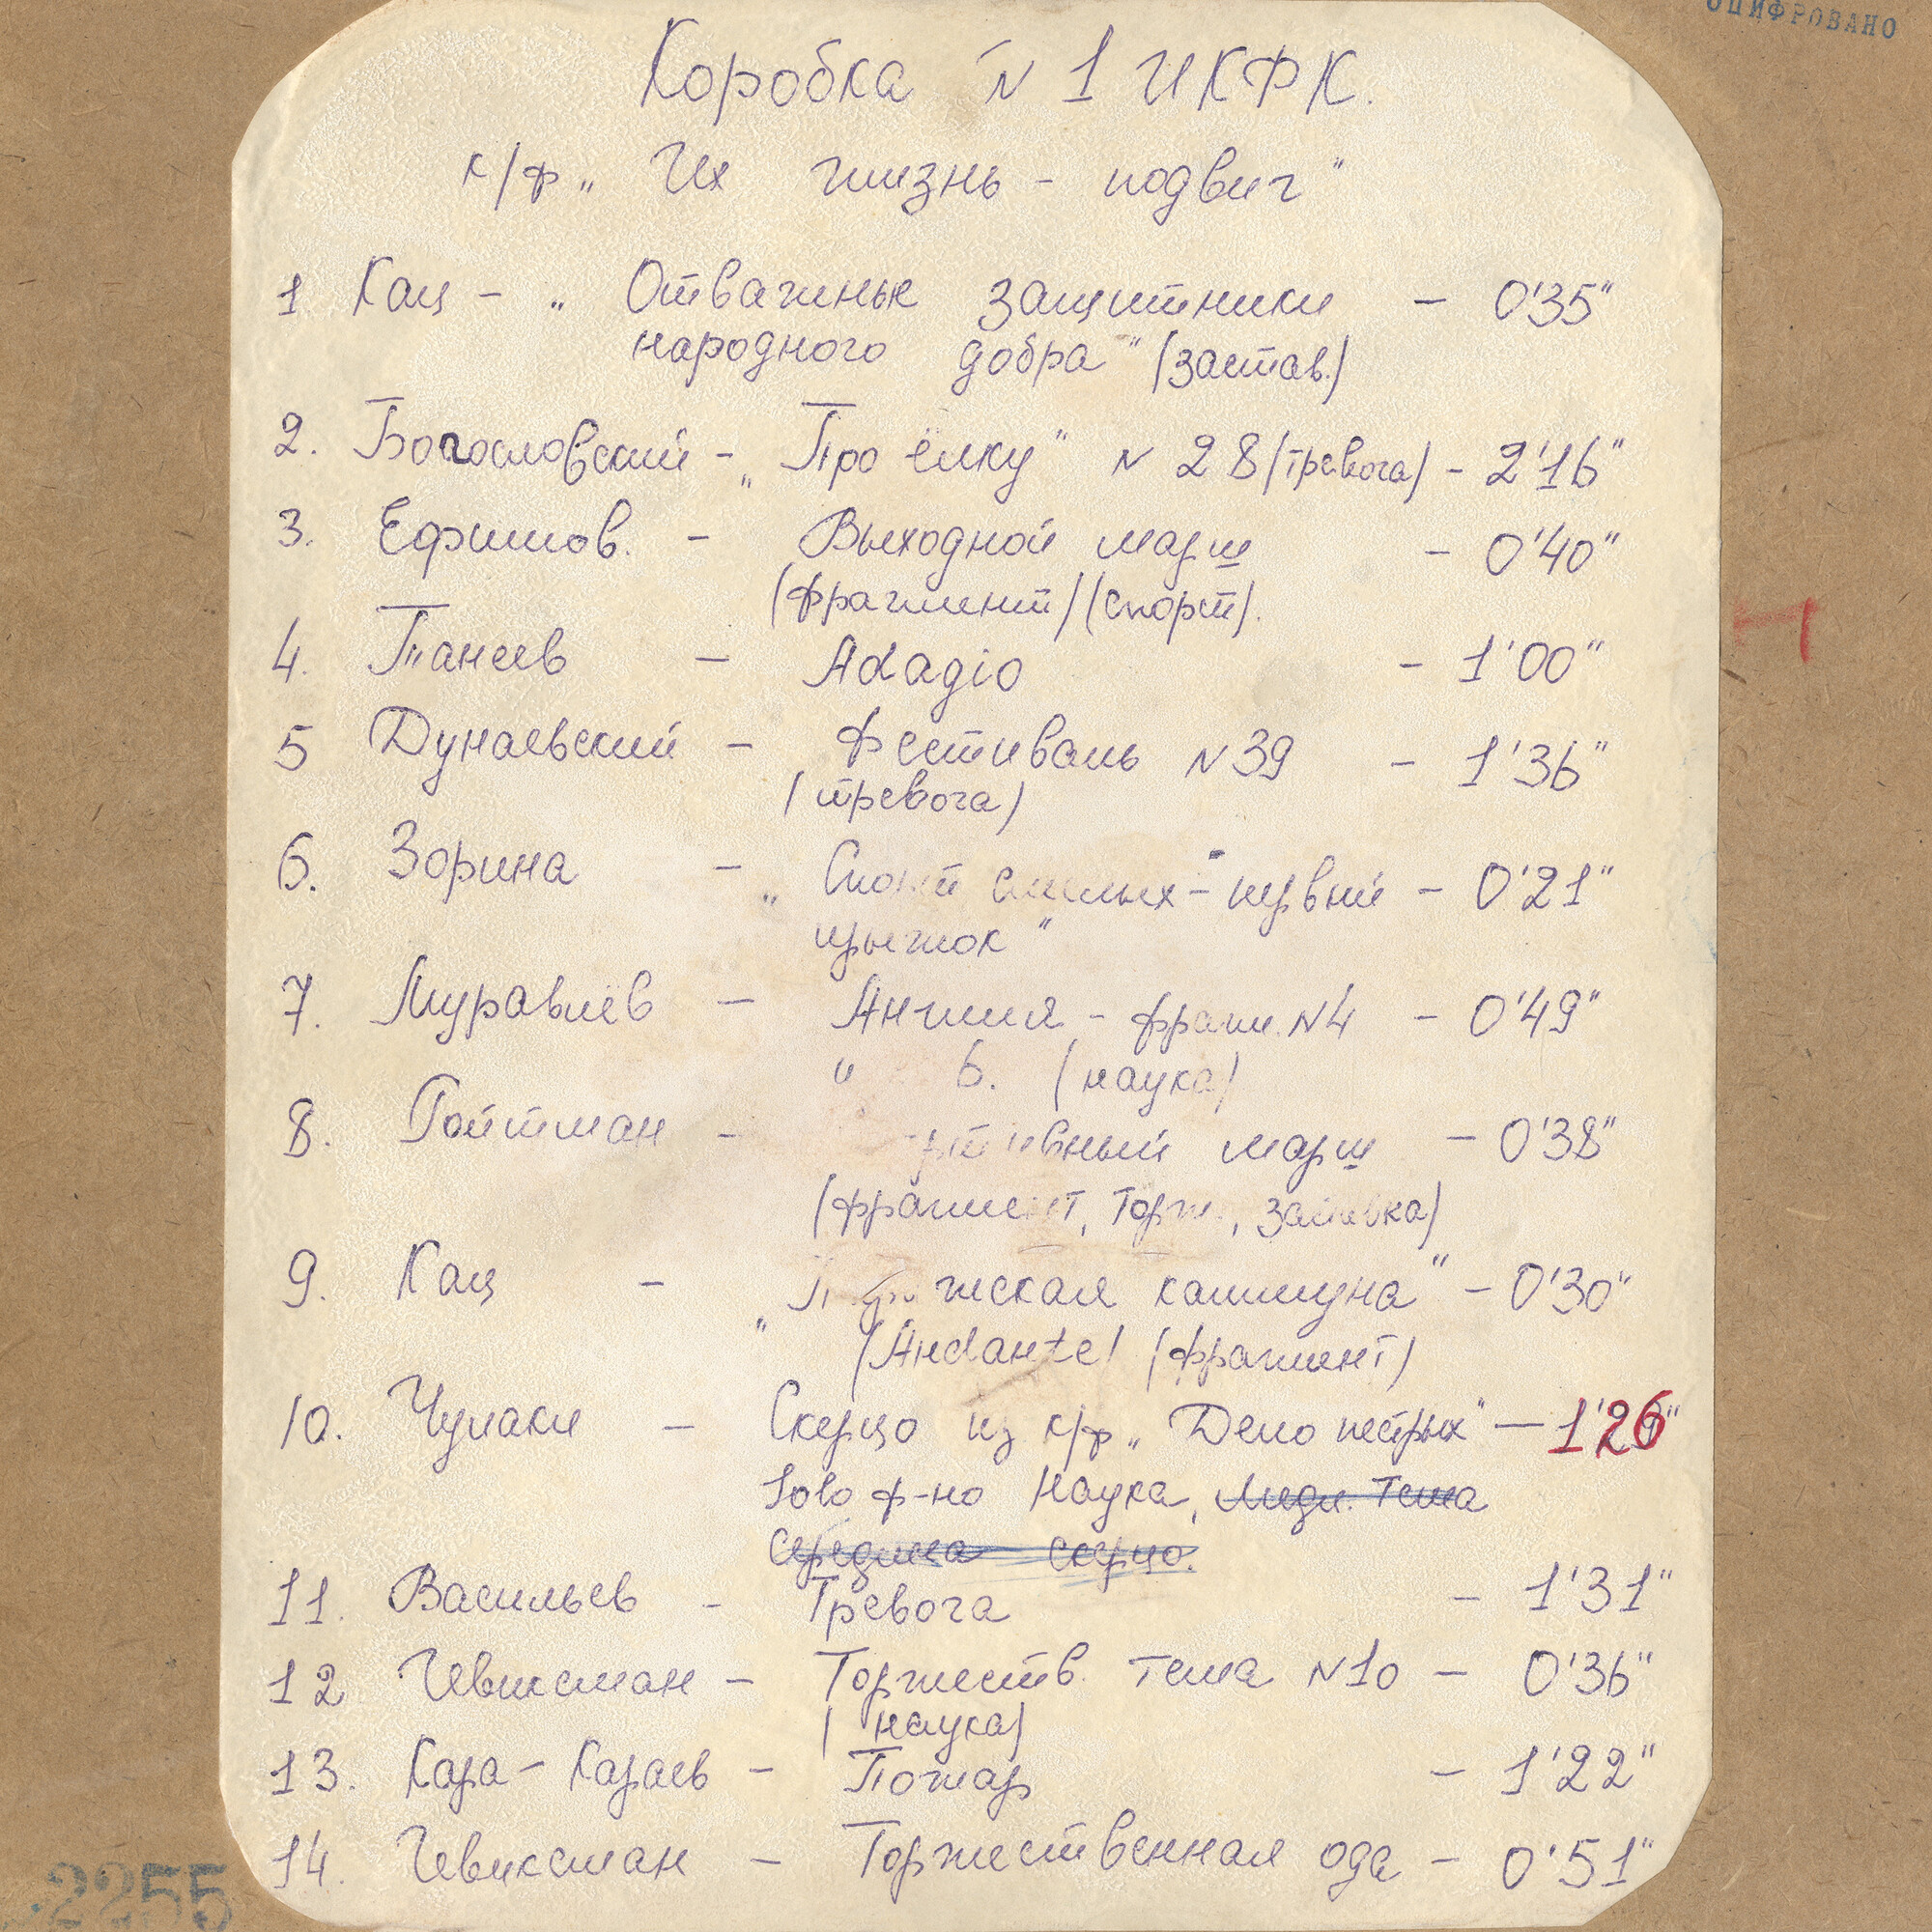 ОЦИФРОВАНО
Коробка N 1 ИКФК.
к/ф „Их жизнь - подвиг"
1 Кац - „Отважные защитники - 0'35"
народного добра" (застав.)
2. Богословский - „Про ёлку" N 28 (тревога) - 2'16"
3. Ефимов. - Выходной марш - 0'40"
(фрагмент) (спорт).
4. Танеев - Adagio - 1'00"
5 Дунаевский - Фестиваль N 39 - 1'36"
(тревога)
6. Зорина - „Спорт смелых - первый - 0'21"
прыжок"
7. Муравлёв - Англия - фрагм. N4 - 0'49"
" 6. (наука)
8. Гойтман - марш - 0'38"
(фрагмент, Торж., заставка)
9. Кац - „Парижская коммуна" - 0'30"
(Andante) (фрагмент)
10. Чулаки - Скерцо из к/ф „Дело пестрых" - 1'26"
Solo ф-но Наука, Медл. Тема
Середина скерцо.
11. Васильев - Тревога - 1'31"
12 - Торжеств. тема N10 - 0'36"
(наука)
13. Кара-Караев - Пожар - 1'22"
14. - Торжественная ода - 0'51"
2255